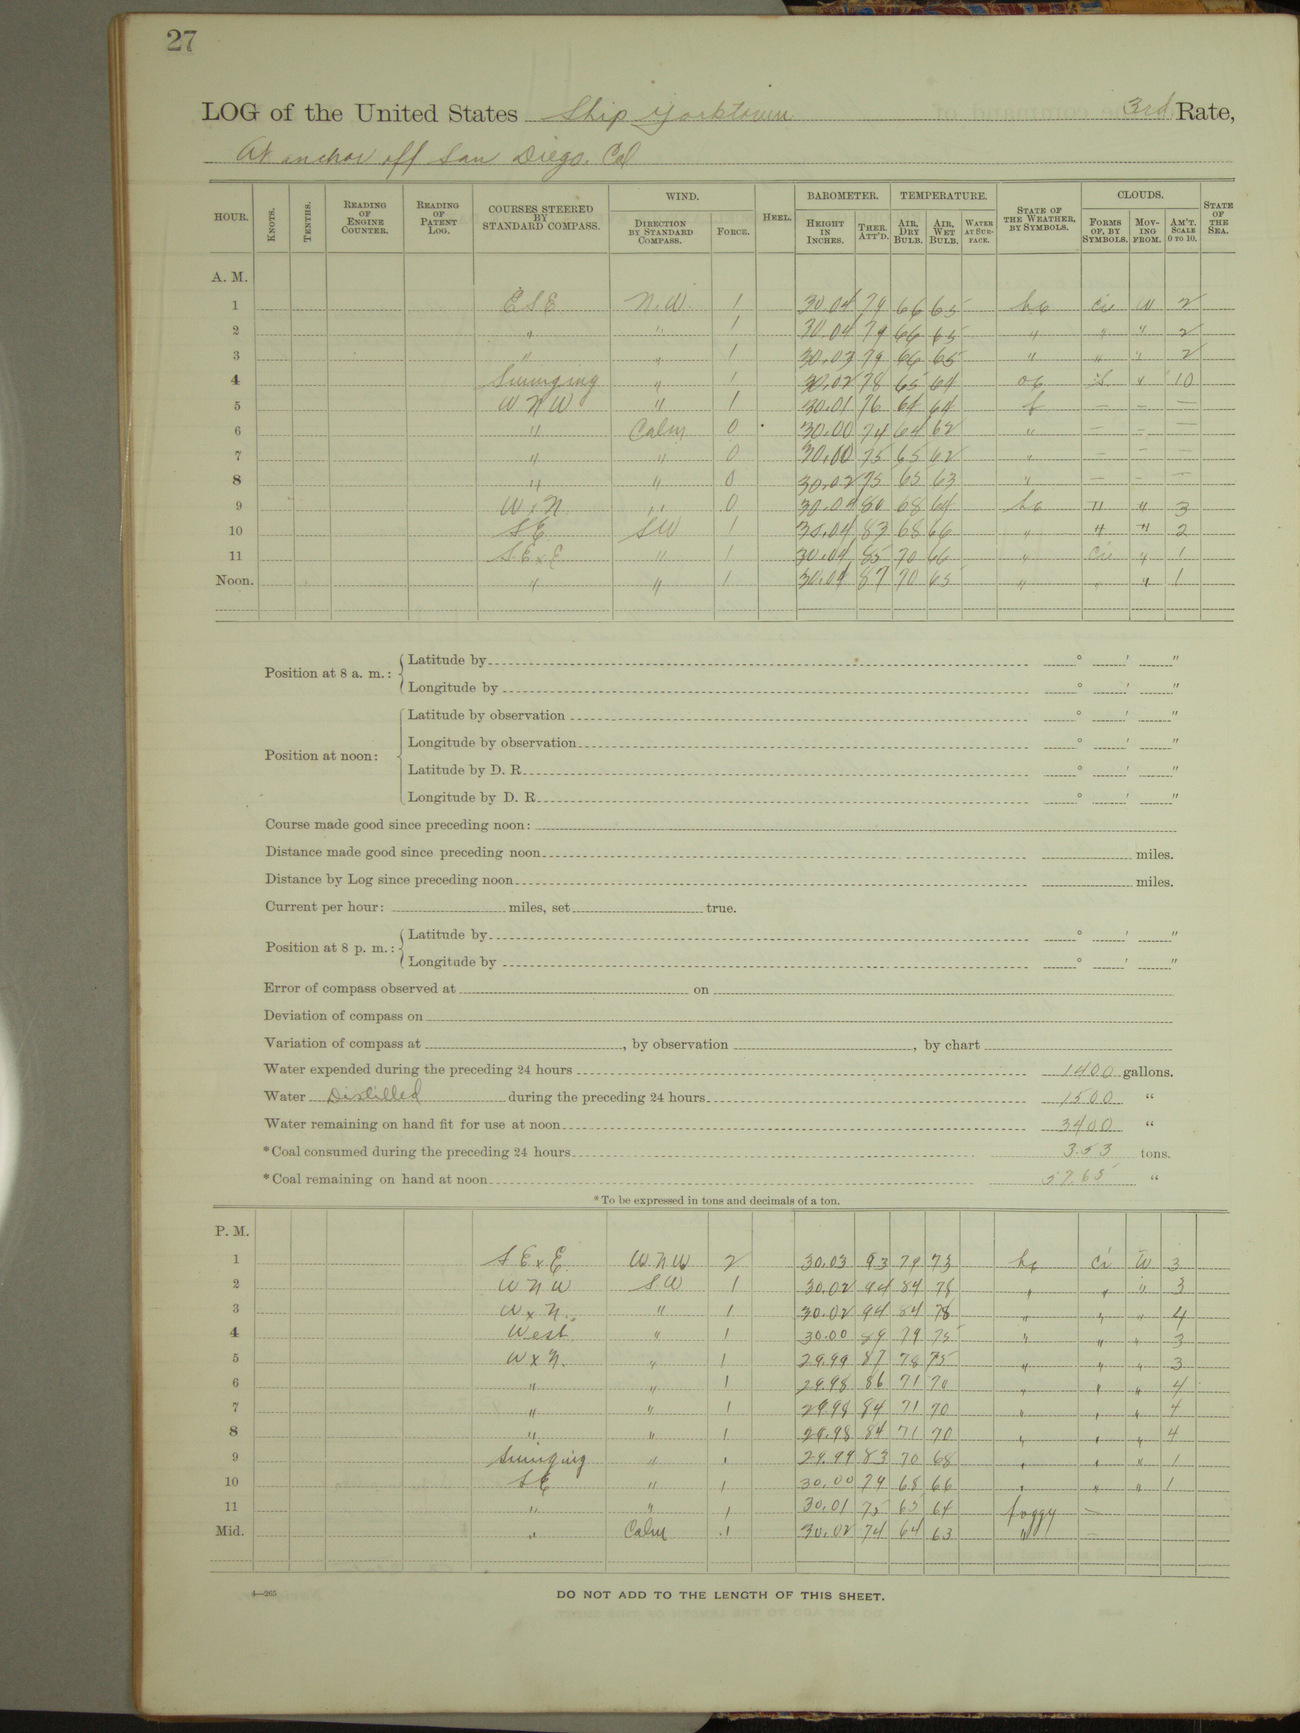 27
LOG of the United States Ship Yorktown 3rd Rate,
At anchor off San Diego. Cal
HOUR. KNOTS. TENTHS. READING OF ENGINE COUNTER. READING OF PATENT LOG. COURSES STEERED BY STANDARD COMPASS. WIND. DIRECTION BY STANDARD COMPASS. FORCE. HEEL. BAROMETER. HEIGHT IN INCHES. THER. ATT'D. TEMPERATURE. AIR, DRY BULB. AIR, WET BULB. WATER AT SURFACE. STATE OF THE WEATHER, BY SYMBOLS. CLOUDS. FORMS OF, BY SYMBOLS. MOVING FROM. AM'T. SCALE 0 TO 10. STATE OF THE SEA.
A. M.
1 ESE N.W. 1 30.04 79 66 65 bc Ci W 2
2 " " 1 30.04 79 66 65 " " " 2
3 " " 1 30.03 79 66 65 " " " 2
4 Swinging " 1 30.02 78 65 64 oc S. " 10
5 WNW " 1 30.01 76 64 64 f — — —
6 " Calm 0 30.00 74 64 62 " — — —
7 " " 0 30.00 75 65 62 " — — —
8 " " 0 30.02 75 65 63 " — — —
9 W x N. " 0 80 68 64 bc " " 3
10 SE SW 1 30.04 83 68 66 " " " 2
11 S.E x E " 1 30.04 85 70 66 " Ci " 1
Noon. " " 1 30.04 87 70 65 " " " 1
Position at 8 a. m.: Latitude by ° ' "
Longitude by ° ' "
Position at noon: Latitude by observation ° ' "
Longitude by observation ° ' "
Latitude by D. R. ° ' "
Longitude by D. R. ° ' "
Course made good since preceding noon:
Distance made good since preceding noon miles.
Distance by Log since preceding noon miles.
Current per hour: miles, set true.
Position at 8 p. m.: Latitude by ° ' "
Longitude by ° ' "
Error of compass observed at on
Deviation of compass on
Variation of compass at , by observation , by chart
Water expended during the preceding 24 hours 1400 gallons.
Water Distilled during the preceding 24 hours 1500 "
Water remaining on hand fit for use at noon 3400 "
*Coal consumed during the preceding 24 hours 3.53 tons.
*Coal remaining on hand at noon 57.65 "
*To be expressed in tons and decimals of a ton.
P. M.
1 S E x E WNW 2 30.03 93 79 73 bc Ci W 3
2 WNW S.W 1 30.02 94 84 78 " " " 3
3 W x N. " 1 30.02 94 84 78 " " " 4
4 West " 1 30.00 89 79 75 " " " 3
5 W x N. " 1 29.99 87 78 75 " " " 3
6 " " 1 29.98 86 71 70 " " " 4
7 " " 1 29.98 84 71 70 " " " 4
8 " " 1 29.98 84 71 70 " " " 4
9 Swinging " 1 29.99 83 70 68 " " " 1
10 SE " 1 30.00 79 68 66 " " " 1
11 " " 1 30.01 75 65 64 foggy —
Mid. " Calm 1 30.02 74 64 63 " —
4—265
DO NOT ADD TO THE LENGTH OF THIS SHEET.